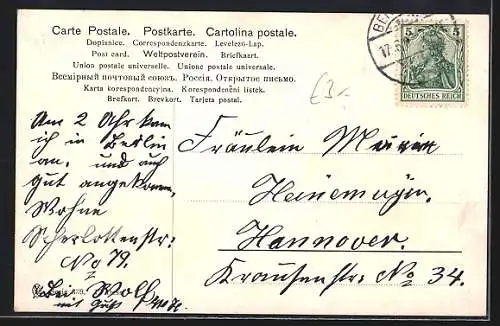 Carte Postale. Postkarte. Cartolina postale.
Dopisnice. Correspondenzkarte. Levelező-Lap.
Post card. Weltpostverein. Briefkaart.
Union postale universelle. Unione postale universale.
Всемірный почтовый союзъ. Россія. Открытое письмо.
Karta korespondencyjna. Korespondenční lístek.
Brefkort. Brevkort. Tarjeta postal.
5 5
DEUTSCHES REICH
£3-
Am 2 Uhr kam
ich in Berlin
an, und auch
gut angekommen,
Wohne
Scharlottenstr:
No 79.
Wolf
Fräulein
Heinemeyer,
Hannover.
Krausenstr: No 34.